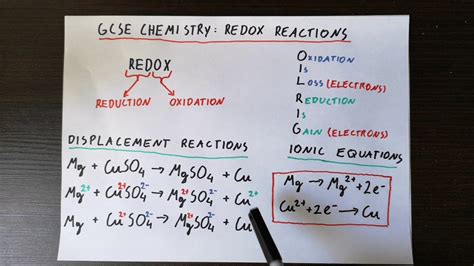 GCSE CHEMISTRY: REDOX REACTIONS
REDOX
REDUCTION OXIDATION
OXIDATION
IS
LOSS (ELECTRONS)
REDUCTION
IS
GAIN (ELECTRONS)
DISPLACEMENT REACTIONS
Mg + CuSO₄ → MgSO₄ + Cu
Mg²⁺ + Cu²⁺SO₄²⁻ → Mg²⁺SO₄²⁻ + Cu²⁺
Mg + Cu²⁺SO₄²⁻ → Mg²⁺SO₄²⁻ + Cu
IONIC EQUATIONS
Mg → Mg²⁺ + 2e⁻
Cu²⁺ + 2e⁻ → Cu